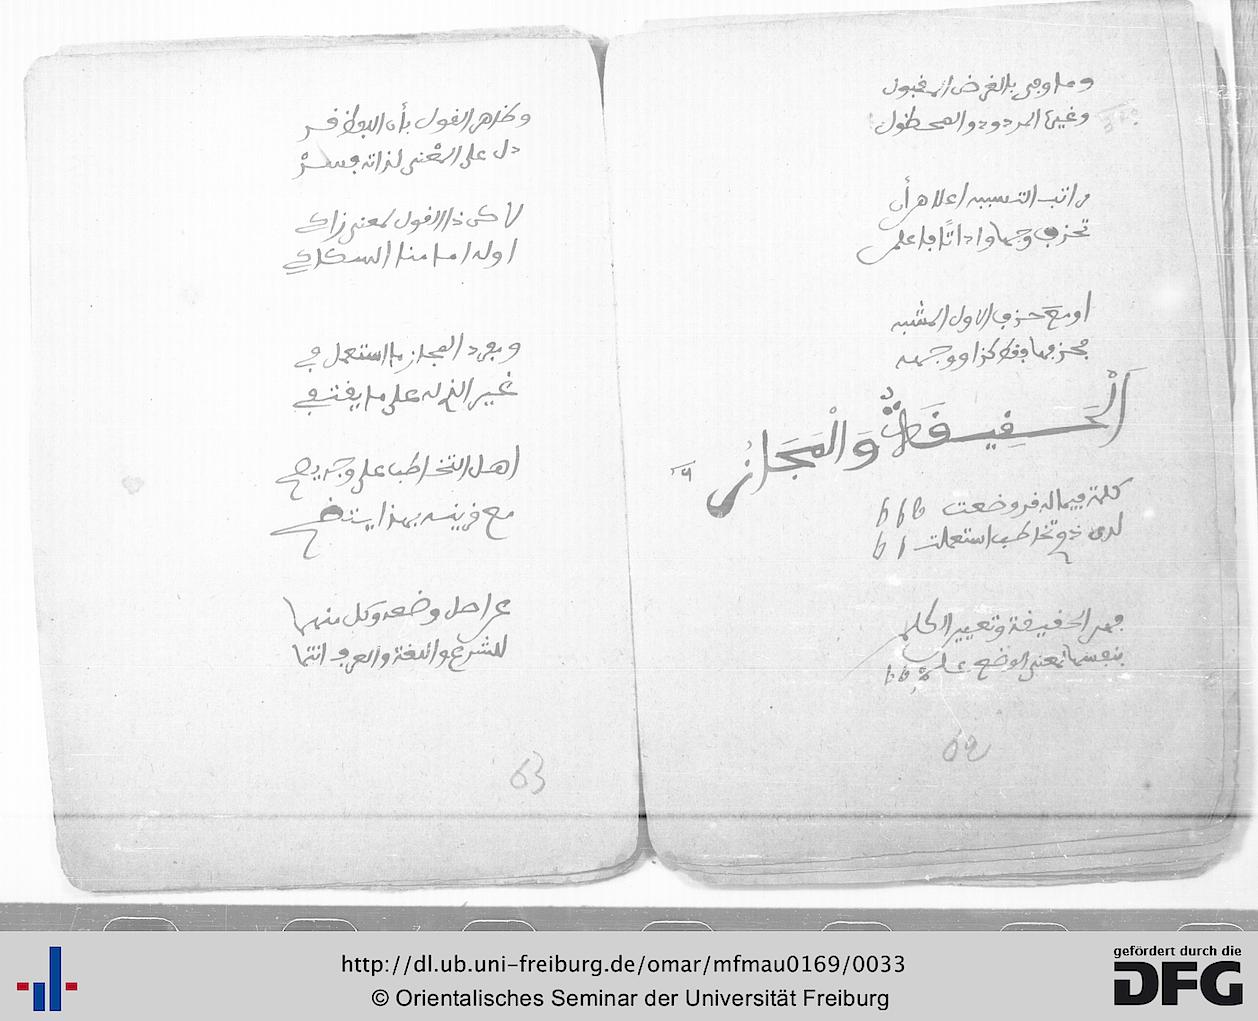 وما وفى بالغرض المقبول
وغيره المردود والمحظول
مراتب التشبيه أعلاها أن
تحذف وجها واداتا فاعلمن
او مع حذف الاول المشبه
بحذفها فقط كذا ووجهه
اَلْحَقِيقَةُ وَالْمَجَازُ
كلمة فيما له قد وضعت
لدى ذي تخاطب استعملت
فهي الحقيقة وتعيين الكلم
بنفسها لمعنى الوضع علم
62
وظاهر القول بأن اللفظ قد
دل على المعنى لذاته فسد
لاكن ذا القول لمعنى زاكي
اوله امامنا السكاكي
ومفرد المجاز ما استعمل في
غير الذي له على ما يقتفي
اهل التخاطب على وجه يصح
مع قرينة بهذا يتضح
عن اصل وضعه وكل منهما
للشرع واللغة والعرف انتما
63
http://dl.ub.uni-freiburg.de/omar/mfmau0169/0033
© Orientalisches Seminar der Universität Freiburg
gefördert durch die
DFG